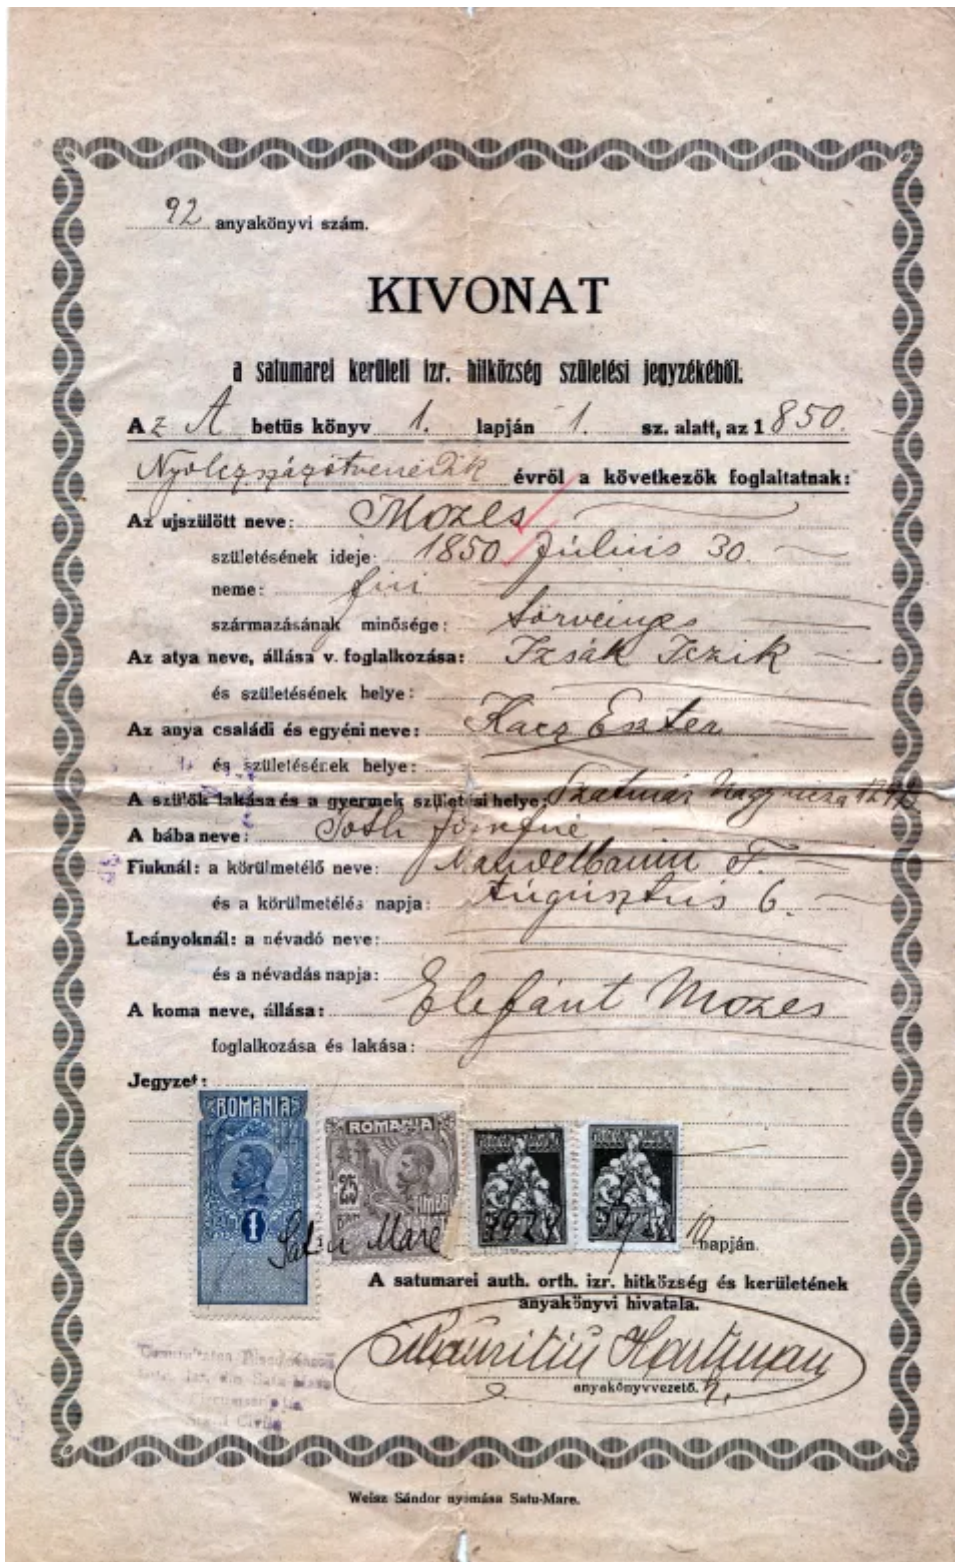 92 anyakönyvi szám.
KIVONAT
a satumarei kerületi izr. hitközség születési jegyzékéből.
Az A betüs könyv 1. lapján 1. sz. alatt, az 1850.
évről a következők foglaltatnak:
Az ujszülött neve: Mozes
születésének ideje: 1850 Július 30.
neme: fiú
származásának minősége: törvényes
Az atya neve, állása v. foglalkozása: Izsák Iczik
és születésének helye:
Az anya családi és egyéni neve: Kacz Eszter
és születésének helye:
A szülők lakása és a gyermek születési helye: Szatmár
A bába neve: Tóth Józsefné
Fiuknál: a körülmetélő neve: Mandelbaum F.
és a körülmetélés napja: Augusztus 6.
Leányoknál: a névadó neve:
és a névadás napja:
A koma neve, állása: Elefánt Mozes
foglalkozása és lakása:
Jegyzet:
ROMANIA
ROMANIA
1
25
BANI
TIMBR
Satu Mare 1924
10 napján.
A satumarei auth. orth. izr. hitközség és kerületének
anyakönyvi hivatala.
Mauritiu Hartman
anyakönyvvezető. h.
Weisz Sándor nyomása Satu-Mare.